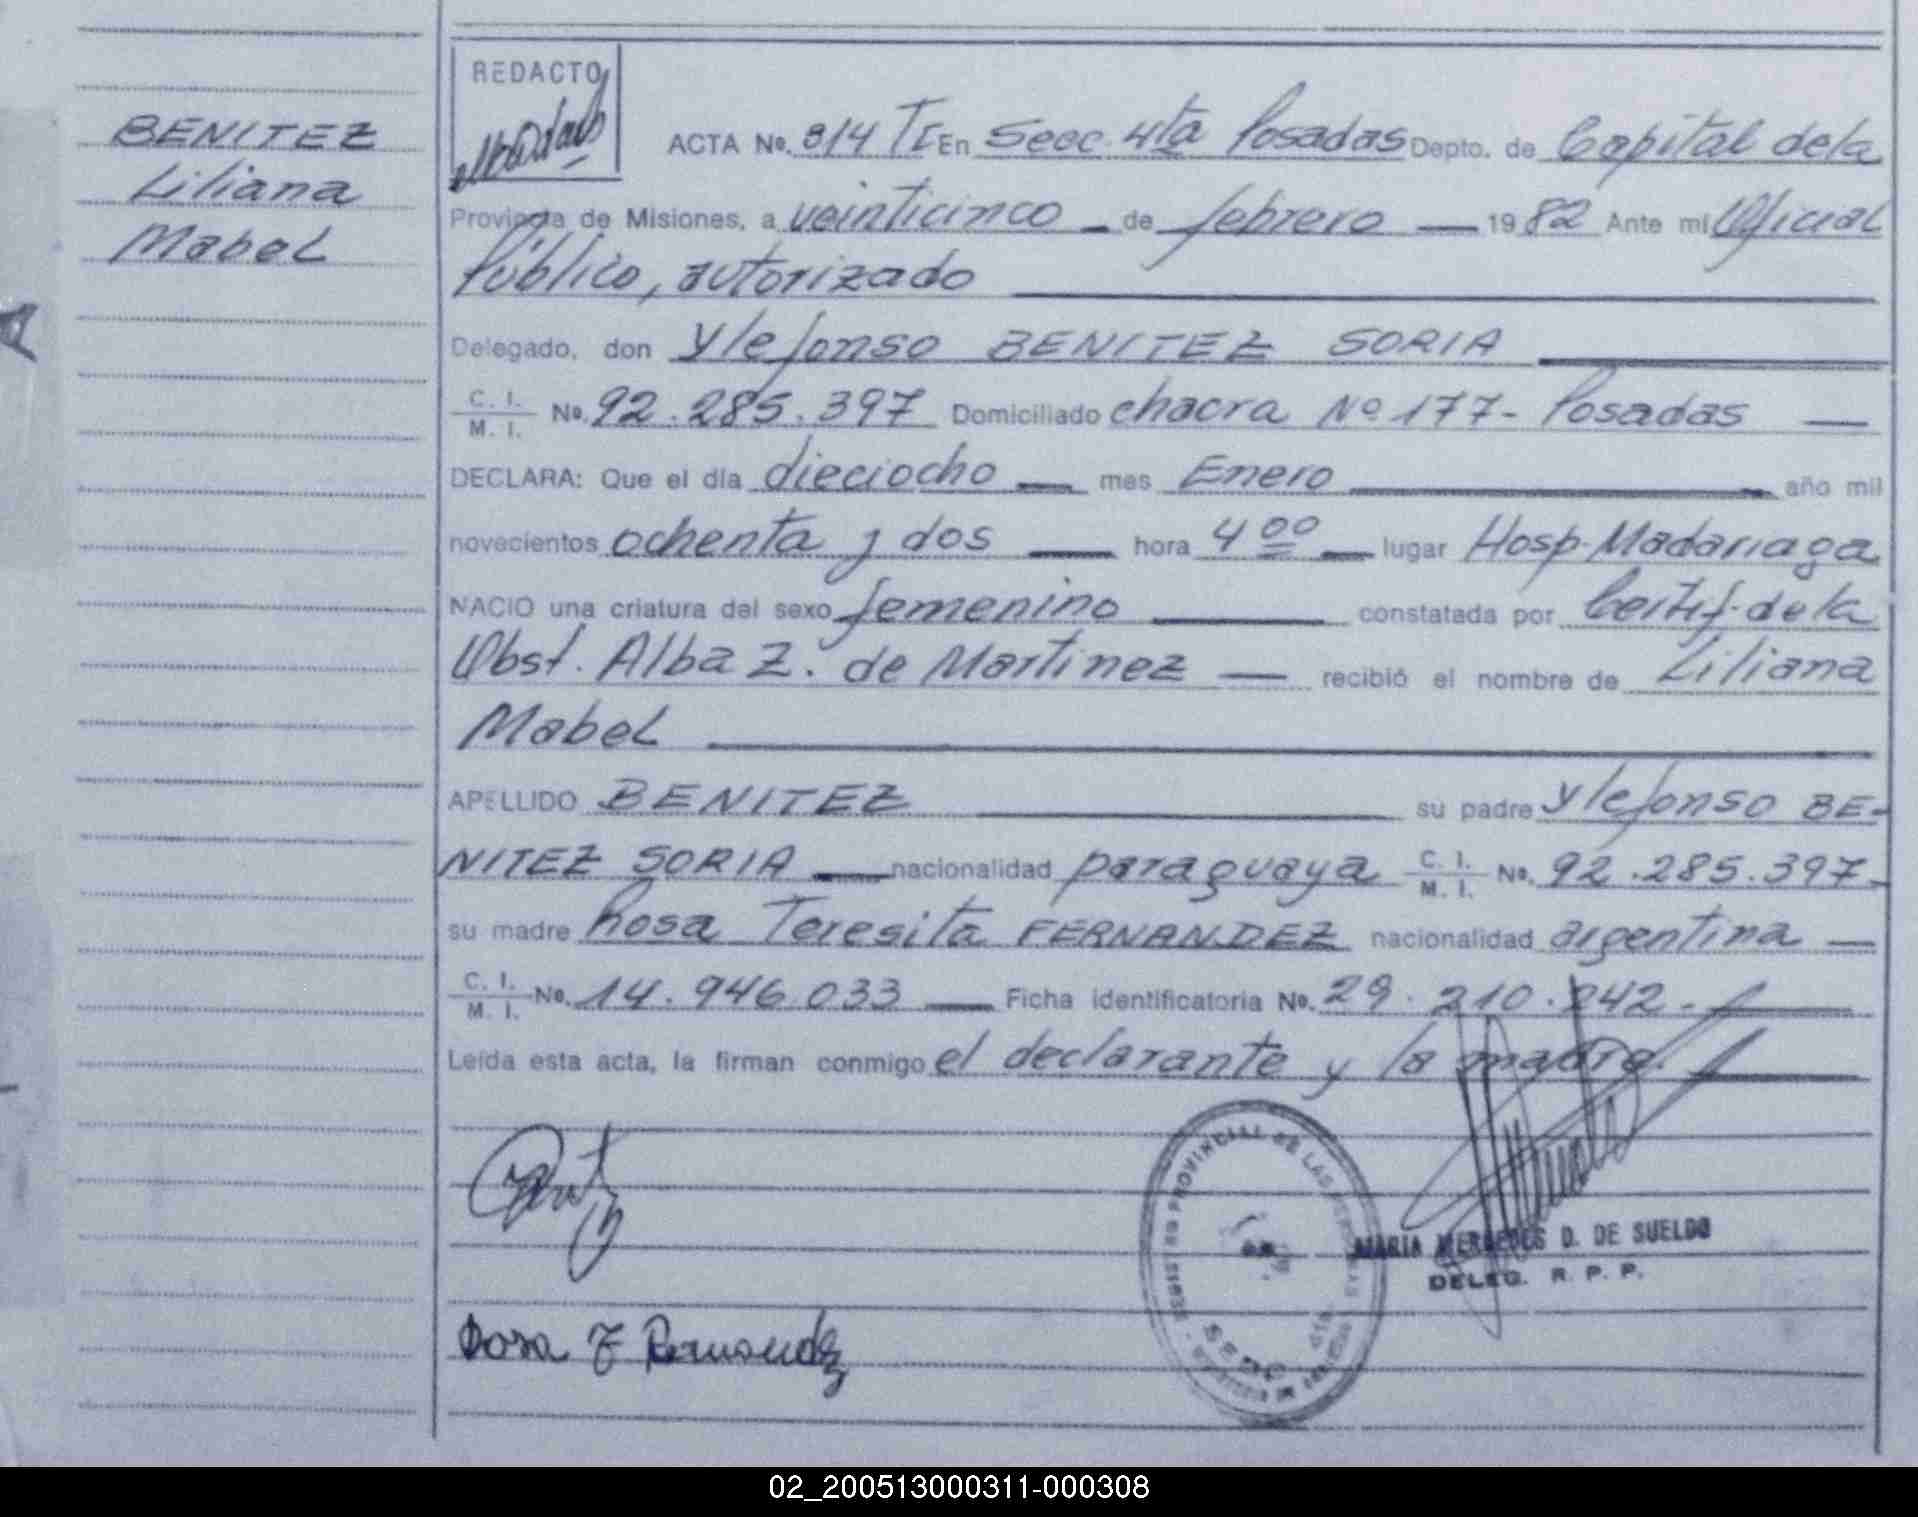 BENITEZ
Liliana
Mabel
REDACTO
ACTA No. 814 TI En Secc. 4ta Posadas Depto. de Capital de la
Provincia de Misiones, a veinticinco - de febrero - 1982 Ante mi Oficial
Público, autorizado
Delegado, don Ylefonso BENITEZ SORIA
C. I.
M. I. No. 92.285.397 Domiciliado chacra No 177- Posadas —
DECLARA: Que el día dieciocho — mes Enero — año mil
novecientos ochenta y dos — hora 4 00 — lugar Hosp. Madariaga
NACIO una criatura del sexo femenino — constatada por Certif. de la
Obst. Alba Z. de Martinez — recibió el nombre de Liliana
Mabel
APELLIDO BENITEZ — su padre Ylefonso BE-
NITEZ SORIA — nacionalidad paraguaya C. I.
M. I. No. 92.285.397-
su madre Rosa Teresita FERNANDEZ nacionalidad argentina —
C. I.
M. I. No. 14.946.033 — Ficha identificatoria No. 29.210.242.-
Leída esta acta, la firman conmigo el declarante y la madre.
PROVINCIAL DE LAS PERSONAS
MARIA MERCEDES D. DE SUELDO
DELEG. R. P. P.
Rosa T Fernandez
02_200513000311-000308